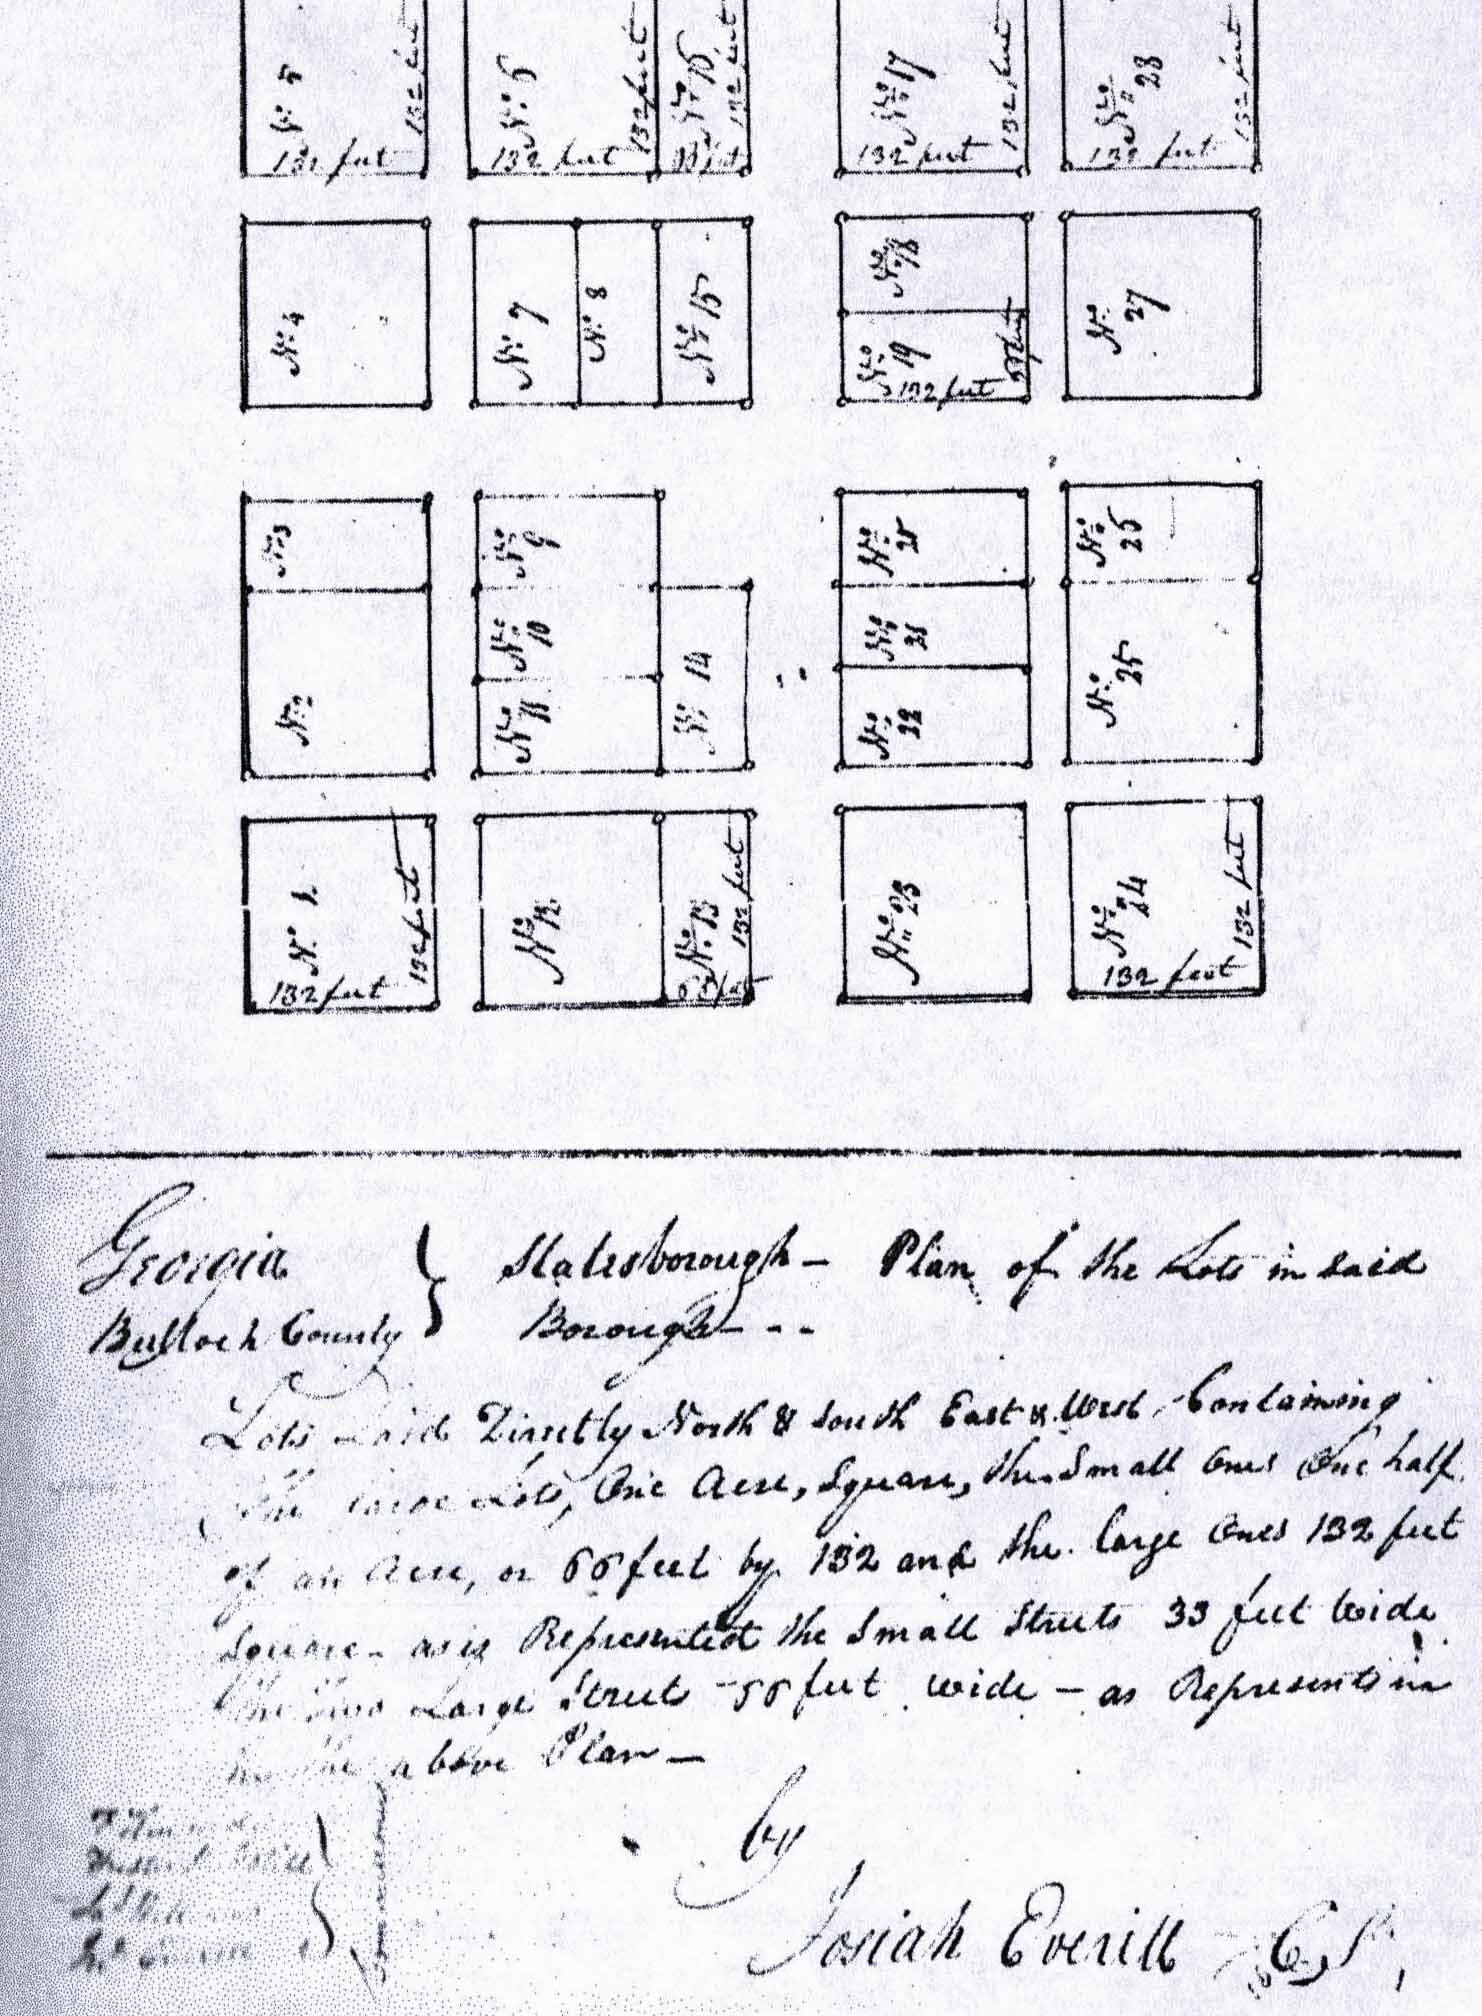 No. 5
132 feet
132 feet
No. 6
132 feet
132 feet
No. 16
132 feet
No. 17
132 feet
132 feet
No. 28
132 feet
132 feet
No. 4
No. 7
No. 8
No. 15
No. 18
No. 19
132 feet
No. 27
No. 3
No. 2
No. 9
No. 10
No. 11
No. 14
No. 21
No. 22
No. 25
No. 1
132 feet
132 feet
No. 12
No. 13
132 feet
66 feet
No. 23
No. 24
132 feet
132 feet
Georgia } Statesborough – Plan of the Lots in said
Bulloch County } Borough - - -
Lots Laid Directly North & South East & West, Containing
The large Lots, One Acre, Square, the Small ones One half
of an Acre, or 66 feet by 132 and the large ones 132 feet
Square – as is Represented the Small Streets 33 feet wide
The Two Large Streets 66 feet wide – as Represents in
the above Plan –
by
Josiah Everitt C, S,